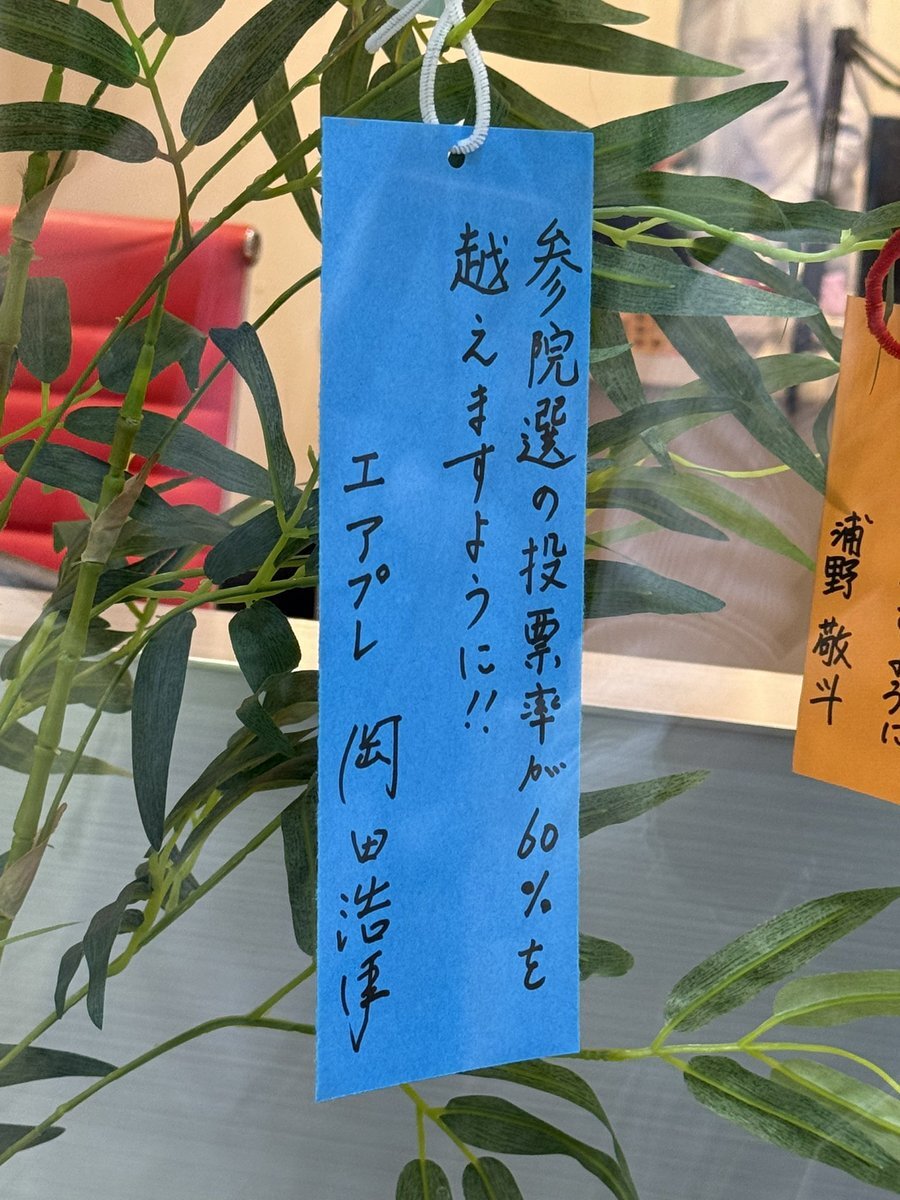 参院選の投票率が60%を
越えますように!!
エアプレ 岡田浩
浦野 敬斗
に